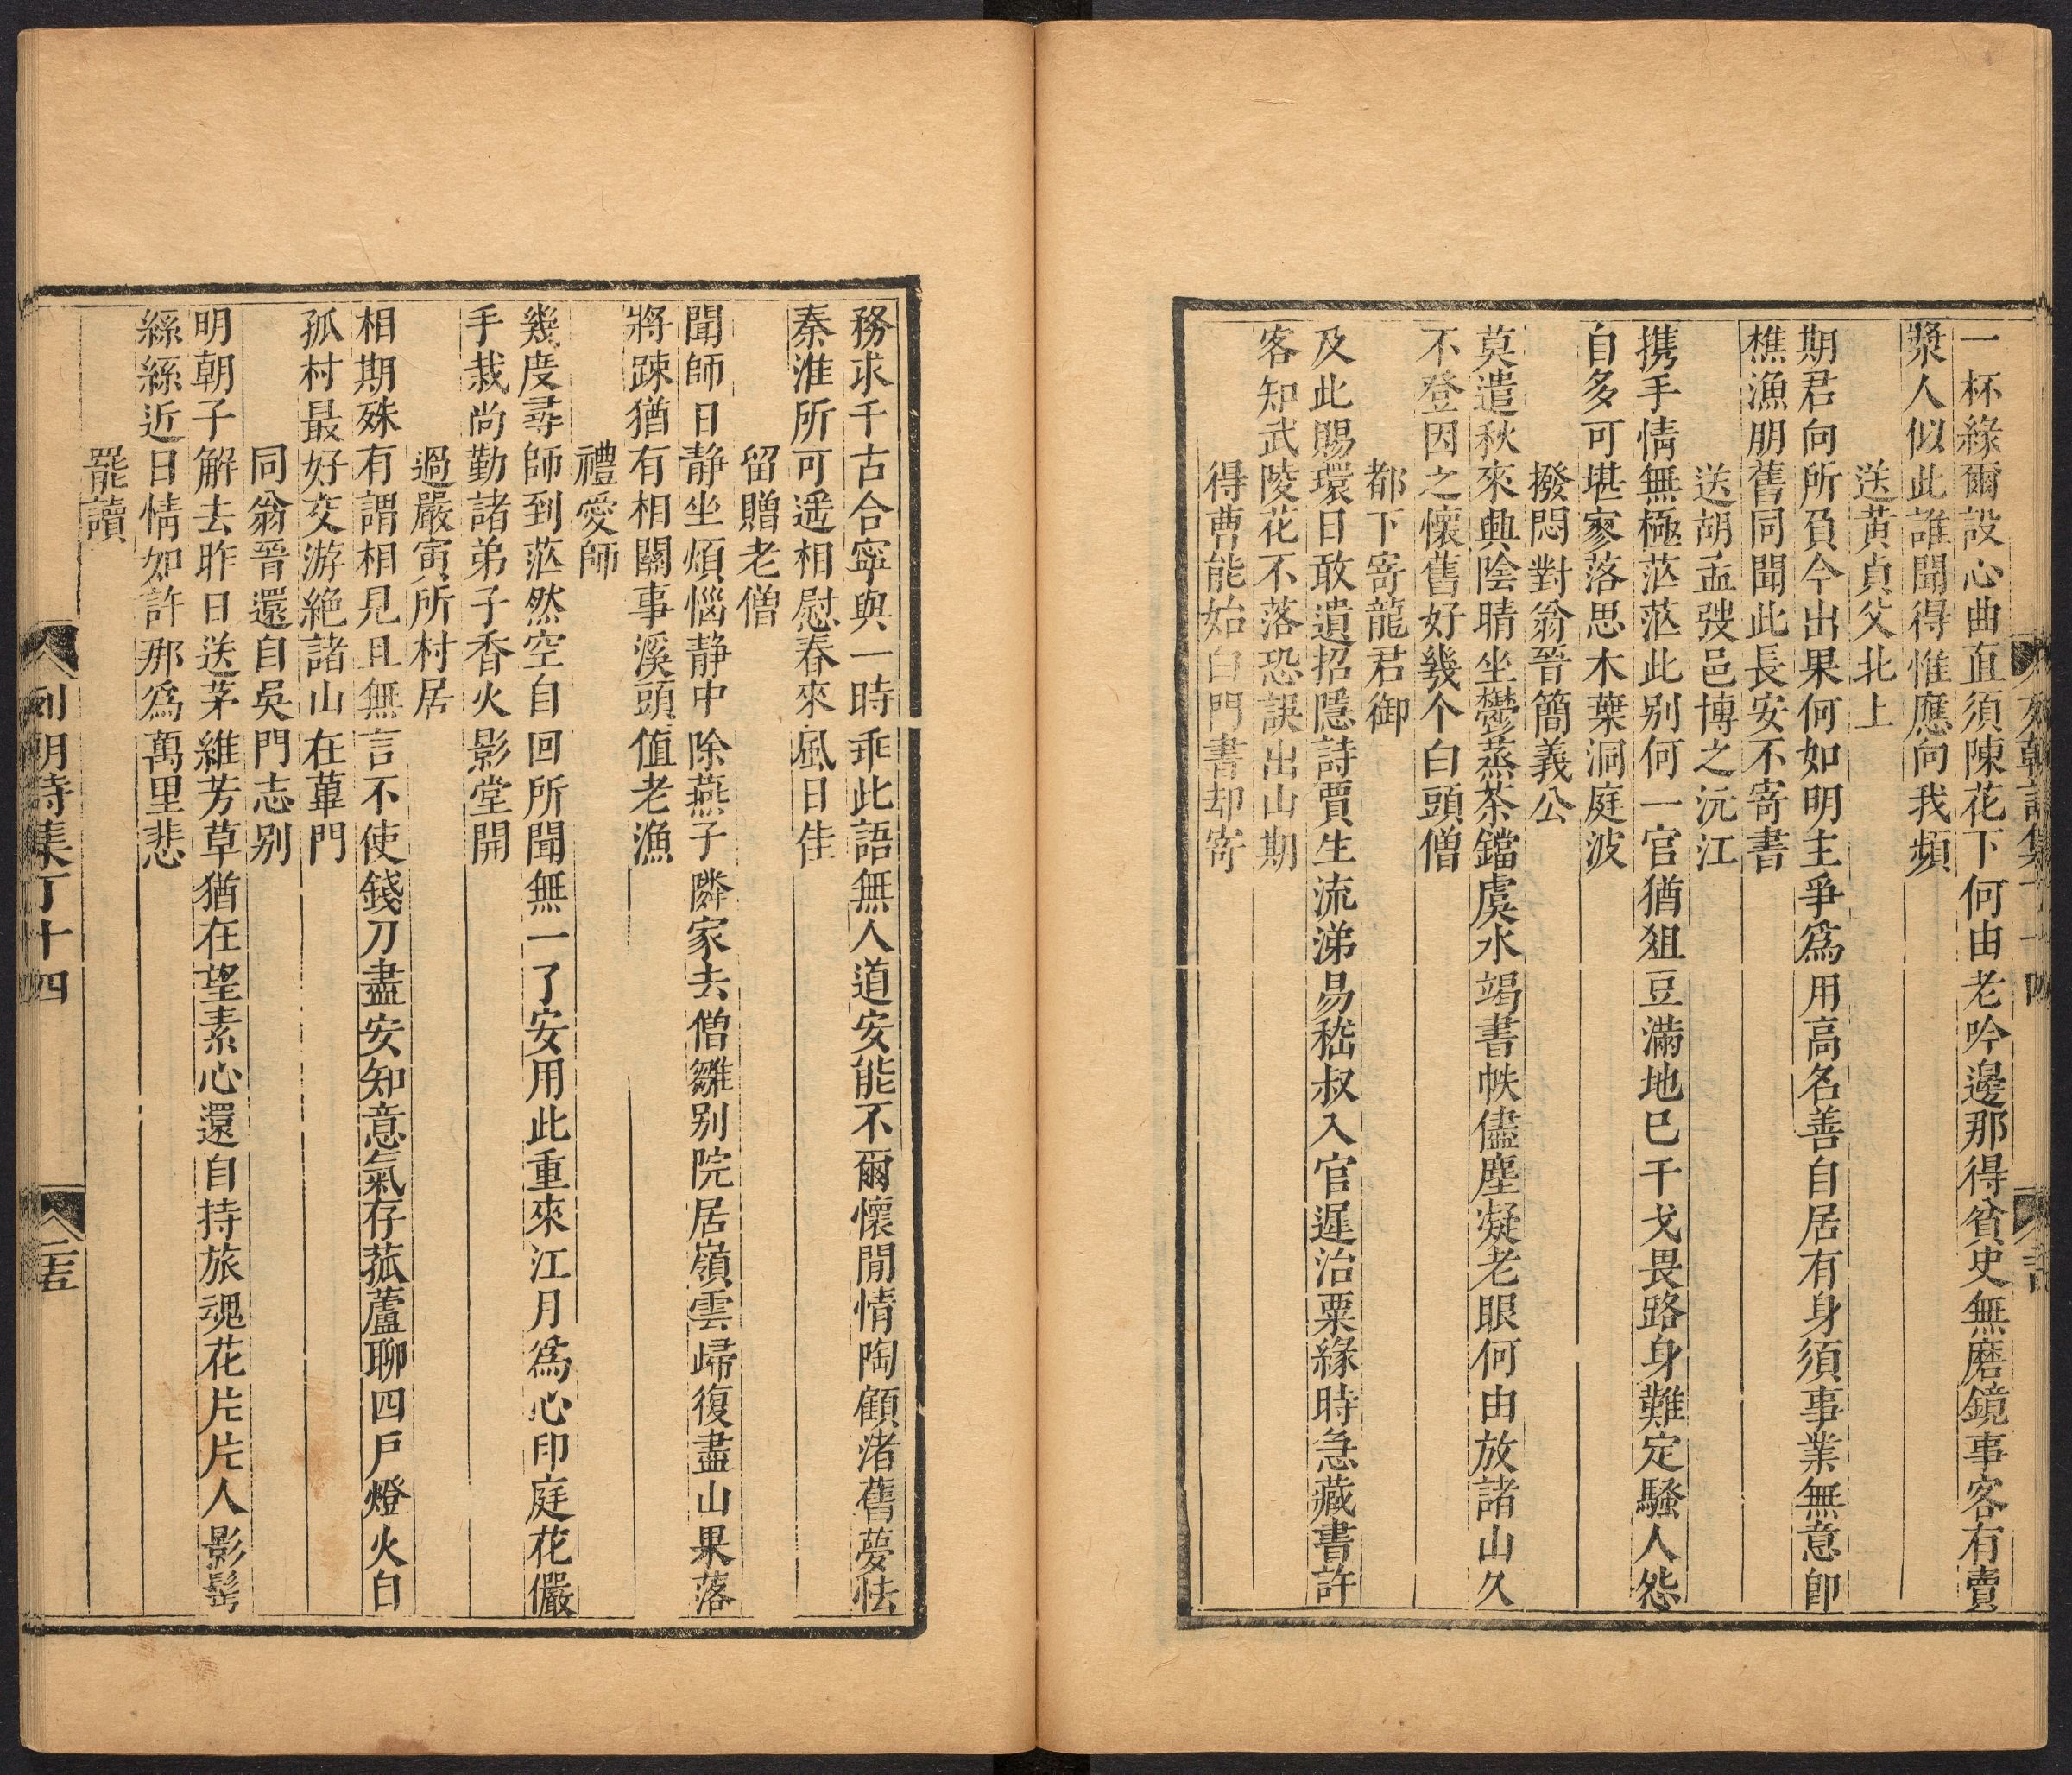 一杯緣爾設心曲直須陳花下何由老吟邊那得貧史無磨鏡事客有賣
漿人似此誰聞得惟應向我頻
送黃貞父北上
期君向所負今出果何如明主爭為用高名善自居有身須事業無意卽
樵漁朋舊同聞此長安不寄書
送胡孟弢邑博之沅江
携手情無極茫茫此別何一官猶俎豆滿地已干戈畏路身難定騷人怨
自多可堪寥落思木葉洞庭波
撥悶對翁晉簡義公
莫遣秋來典陰晴坐鬱蒸茶鐺虞水竭書帙儘塵凝老眼何由放諸山久
不登因之懷舊好幾个白頭僧
都下寄龍君御
及此賜環日敢遺招隱詩賈生流涕易嵇叔入官遲治粟緣時急藏書許
客知武陵花不落恐誤出山期
得曹能始白門書却寄
務求千古合寧與一時乖此語無人道安能不爾懷閒情陶顧渚舊夢怯
秦淮所可遥相慰春來風日佳
留贈老僧
聞師日静坐煩惱静中除燕子隣家去僧雛别院居嶺雲歸復盡山果落
將踈猶有相關事溪頭值老漁
禮愛師
幾度尋師到茫然空自回所聞無一了安用此重來江月為心印庭花儼
手栽尚勤諸弟子香火影堂開
過嚴寅所村居
相期殊有謂相見且無言不使錢刀盡安知意氣存菰蘆聊四戶燈火自
孤村最好交游絶諸山在蓽門
同翁晉還自吳門志别
明朝子解去昨日送茅維芳草猶在望素心還自持旅魂花片片人影髩
絲絲近日情如許那為萬里悲
罷讀
列朝詩集丁十四
二十五